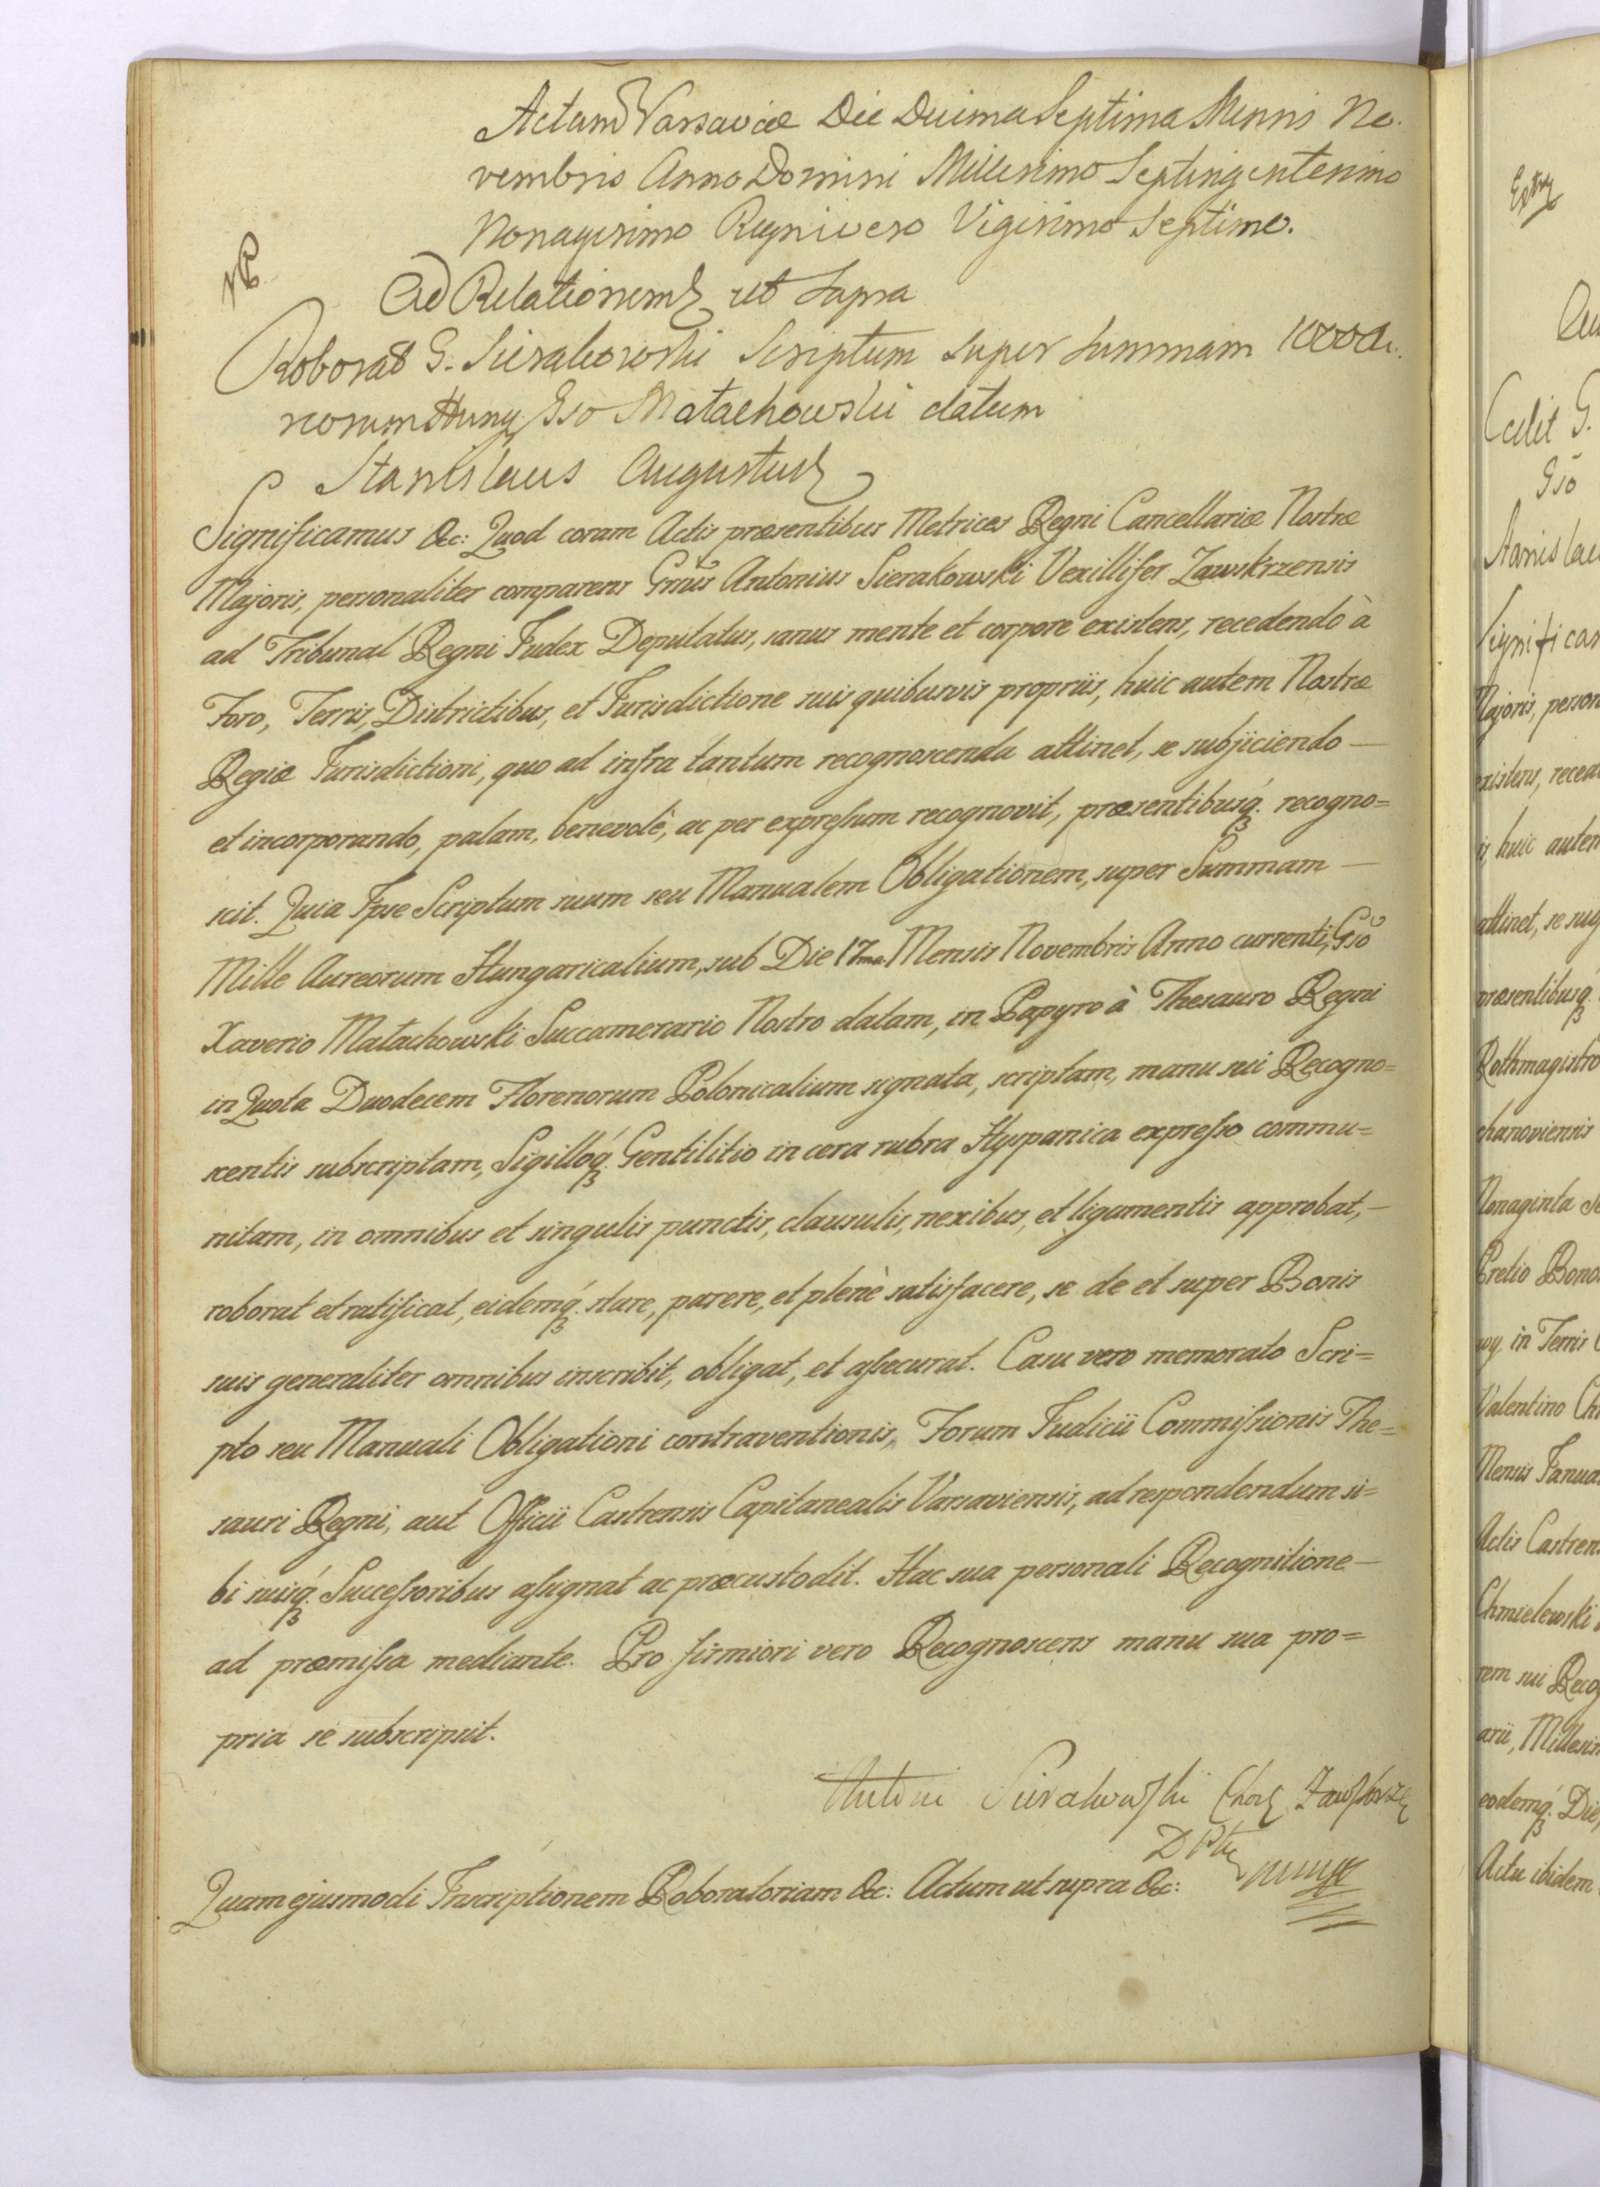 Actum Varsaviæ Die Decima Septima Mensis No-
vembris Anno Domini Millesimo Septingentesimo
Nonagesimo Regni vero Vigesimo Septimo.
Ad Relationem ut supra
Roborat G. Sierakowski Scriptum super summam 1000 Au-
reorum Hung Gso Małachowski datum
Stanislaus Augustus
Significamus &c: Quod coram Actis præsentibus Metrices Regni Cancellariæ Nostræ
Majoris, personaliter comparens Gnũs Antonius Sierakowski Vexillifer Zawskrzensis
ad Tribunal Regni Judex Deputatus, sanus mente et corpore existens, recedendo à
Foro, Terris, Districtibus, et Jurisdictione suis quibusvis propriis, huic autem Nostræ
Regiæ Jurisdictioni, quo ad infra tantum recognoscenda attinet, se subjiciendo —
et incorporando, palam, benevolè, ac per expreſsum recognovit, præsentibusq́ recogno=
scit. Quia Ipse Scriptum suum seu Manualem Obligationem, super Summam —
Mille Aureorum Hungaricalium, sub Die 17ma Mensis Novembris Anno currenti, Gsõ
Xaverio Małachowski Succamerario Nostro datam, in Papyro à Thesauro Regni
in Quota Duodecem Florenorum Polonicalium signata, scriptam, manu sui Recogno=
scentis subscriptam, Sigilloq́ Gentilitio in cera rubra Hyspanica expreſso commu=
nitam, in omnibus et singulis punctis, clausulis, nexibus, et ligamentis approbat, —
roborat et ratificat, eidemq́ stare, parere, et plenè satisfacere, se de et super Bonis
suis generaliter omnibus inscribit, obligat, et aſsecurat. Casu vero memorato Scri=
pto seu Manuali Obligationi contraventionis, Forum Judicii Commiſsionis The=
sauri Regni, aut Officii Castrensis Capitanealis Varsaviensis, ad respondendum si=
bi suisq́ Succeſsoribus aſsignat ac præcustodit. Hac sua personali Recognitione —
ad præmiſsa mediante. Pro firmiori vero Recognoscens manu sua pro=
pria se subscripsit.
Antoni Sierakowſki Chorż Zawſkrze
Quam ejusmodi Inscriptionem Roboratoriam &c: Actum ut supra &c:
Cedit G.
Gso
Stanislau
Significam
Majoris, person
existens, receden
huic autem
attinet, se subj
præsentibusq́
Rothmagistro
chanoviensis
Nonaginta
Pretio Bono
in Terris
Valentino Ch
Mensis Janua
Actis Castren
Chmielewski
rem sui Recog
arii, Millesim
eodemq́ Die,
Actu ibidem